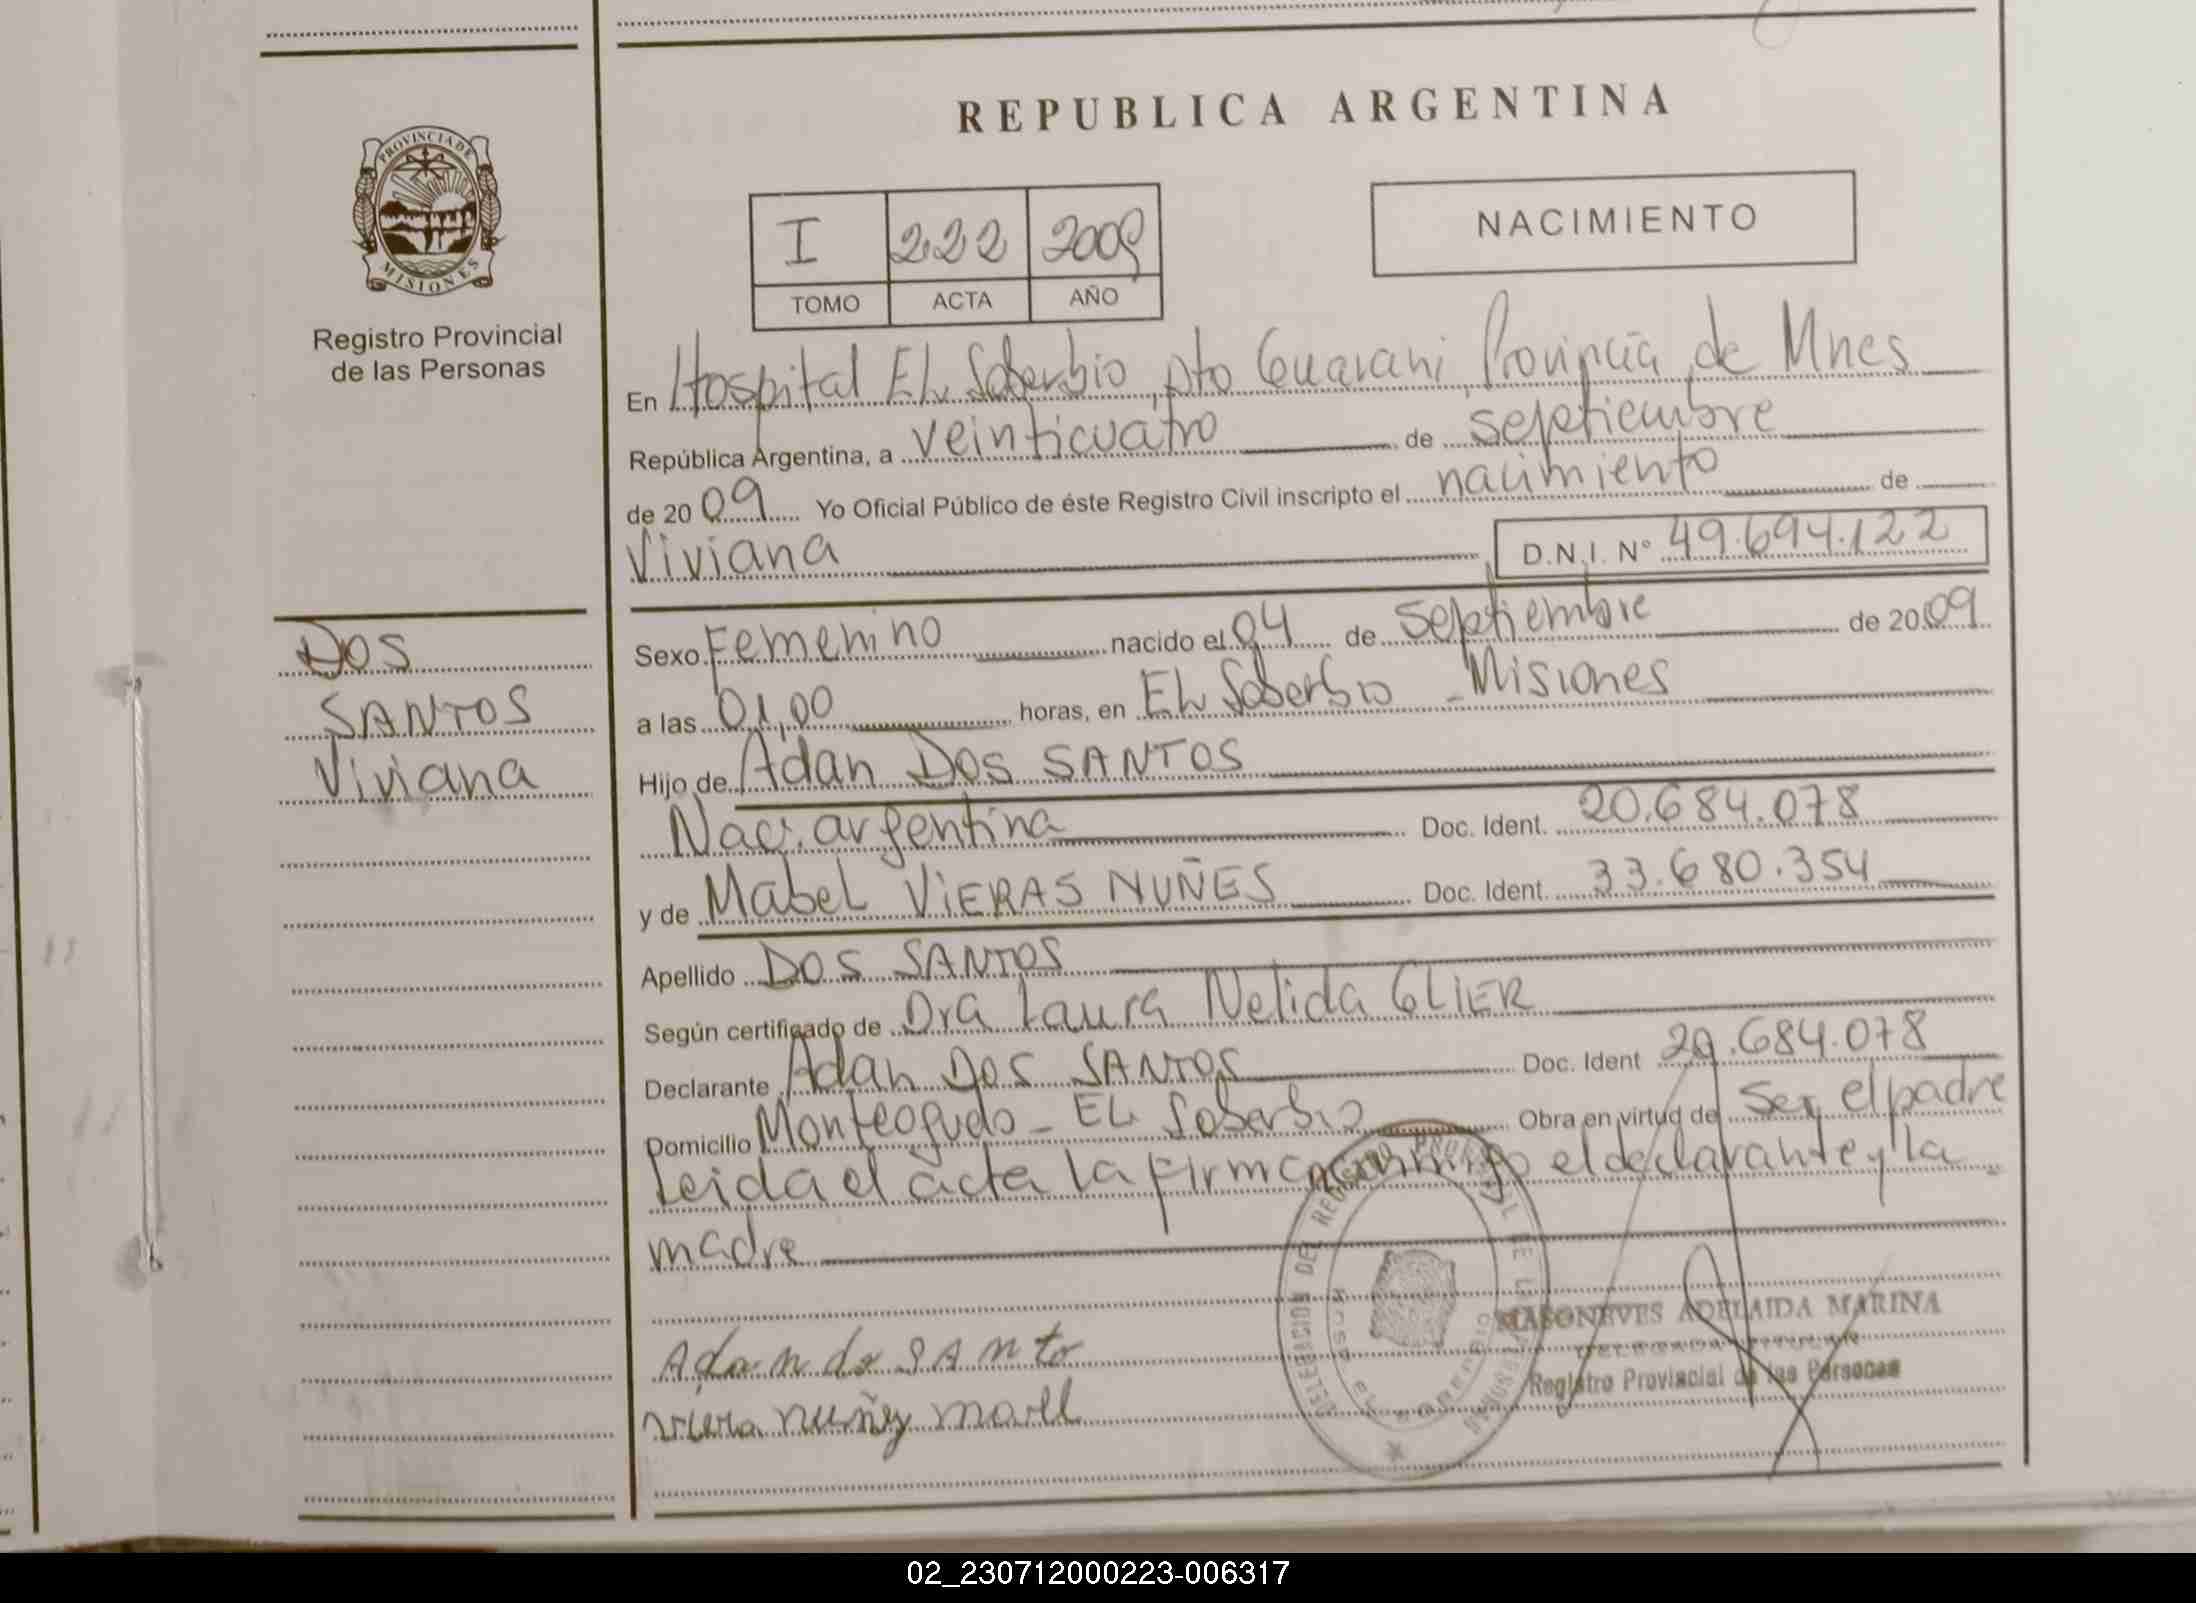 REPUBLICA ARGENTINA
PROVINCIA DE
MISIONES
Registro Provincial
de las Personas
I 222 2009
TOMO ACTA AÑO
NACIMIENTO
En Hospital El Soberbio, Dto Guarani, Provincia de Mnes
República Argentina, a veinticuatro de septiembre
de 2009 Yo Oficial Público de éste Registro Civil inscripto el nacimiento de
Viviana D.N.I. Nº 49.694.122
Dos
SANTOS
Viviana
Sexo Femenino nacido el 04 de Septiembre de 2009
a las 01,00 horas, en El Soberbio - Misiones
Hijo de Adan Dos SANTOS
Nac. argentina Doc. Ident. 20.684.078
y de Mabel VIERAS NUÑES Doc. Ident. 33.680.354
Apellido DOS SANTOS
Según certificado de Dra Laura Nelida GLIER
Declarante Adan Dos SANTOS Doc. Ident 20.684.078
Domicilio Monteagudo - El Soberbio Obra en virtud de ser el padre
Leida el acta la firma conmigo el declarante y la
madre
DELEGACION DEL REGISTRO PROVINCIAL DE LAS PERSONAS
MASONEVES ADELAIDA MARINA
DELEGADA TITULAR
Registro Provincial de las Personas
Adan do SANto
viera nuñez
02_230712000223-006317